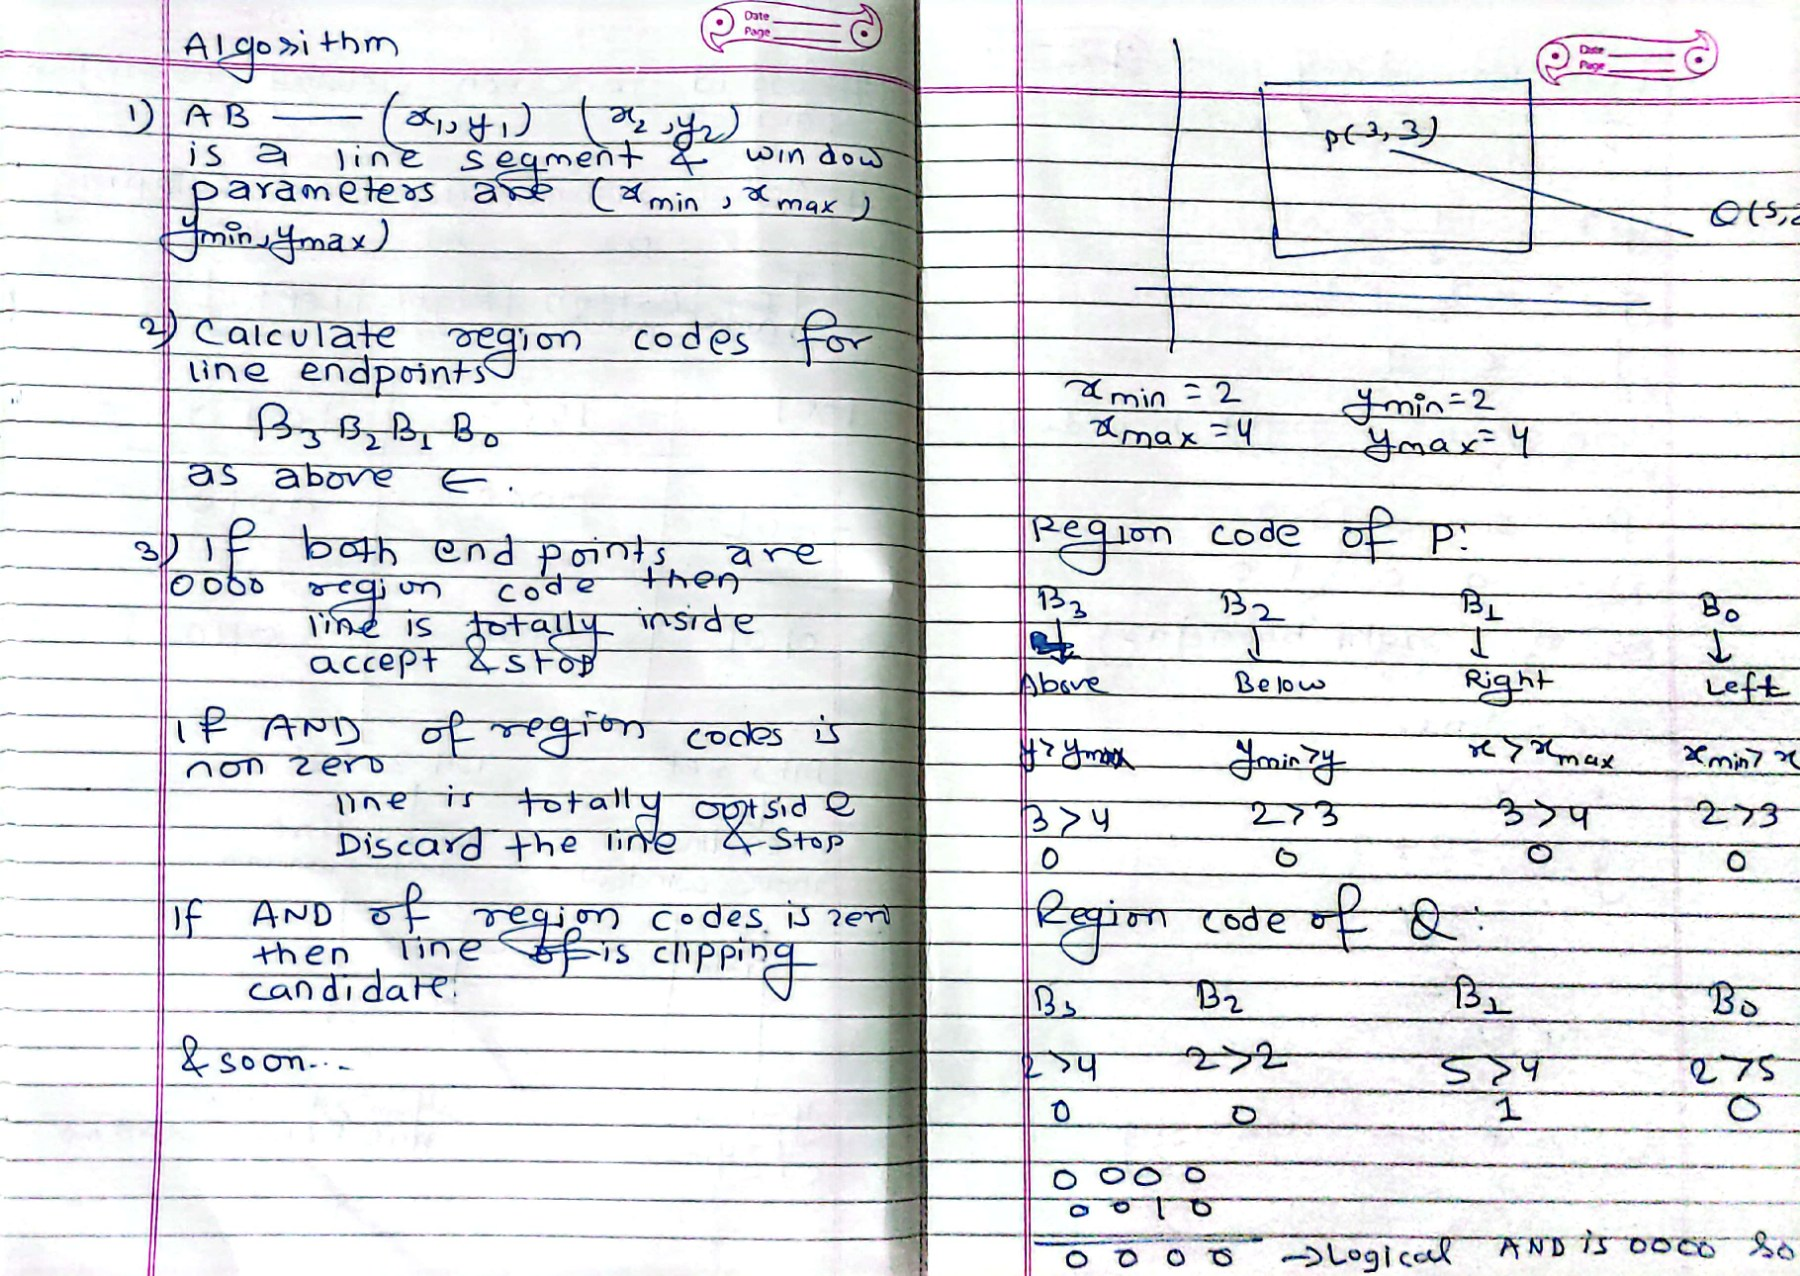 Date
Page
Algorithm
1) AB — (x1, y1) (x2, y2)
is a line segment & window
parameters are (xmin, xmax,
ymin, ymax)
2) Calculate region codes for
line endpoints
B3 B2 B1 B0
as above ←.
3) If both end points are
0000 region code then
line is totally inside
accept & stop
If AND of region codes is
non zero
line is totally outside
Discard the line & stop
If AND of region codes is zero
then line is clipping
candidate.
& soon...
Date
Page
P(3, 3)
Q(5,
xmin = 2 ymin = 2
xmax = 4 ymax = 4
Region code of P:
B3 B2 B1 B0
↓ ↓ ↓ ↓
Above Below Right Left
y > ymax ymin > y x > xmax xmin > x
3 > 4 2 > 3 3 > 4 2 > 3
0 0 0 0
Region code of Q:
B3 B2 B1 B0
2 > 4 2 > 2 5 > 4 2 > 5
0 0 1 0
0 0 0 0
0 0 1 0
0 0 0 0 → Logical AND is 0000 so